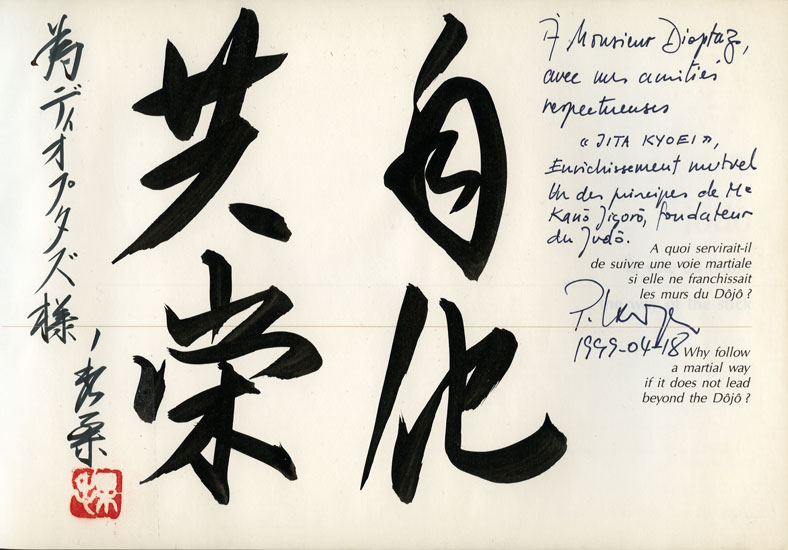 À Monsieur Dioptaz,
avec mes amitiés
respectueuses
« JITA KYOEI »,
Enrichissement mutuel
Un des principes de Me
Kanō Jigorō, fondateur
du Judō.
A quoi servirait-il
de suivre une voie martiale
si elle ne franchissait
les murs du Dôjô ?
1999-04-18
Why follow
a martial way
if it does not lead
beyond the Dôjô ?
自他
共栄
為ディオプタズ様